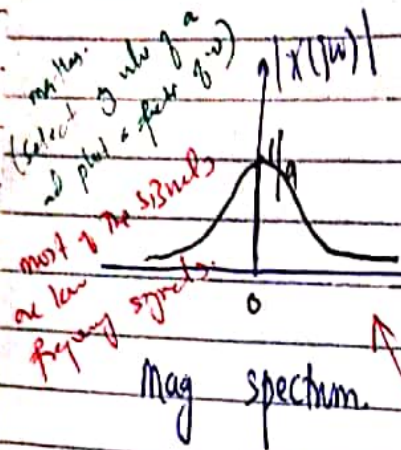 (select value of a
and plot a
|X(jω)|
1/a
most of the signals
are low
frequency signals.
0
Mag spectrum.